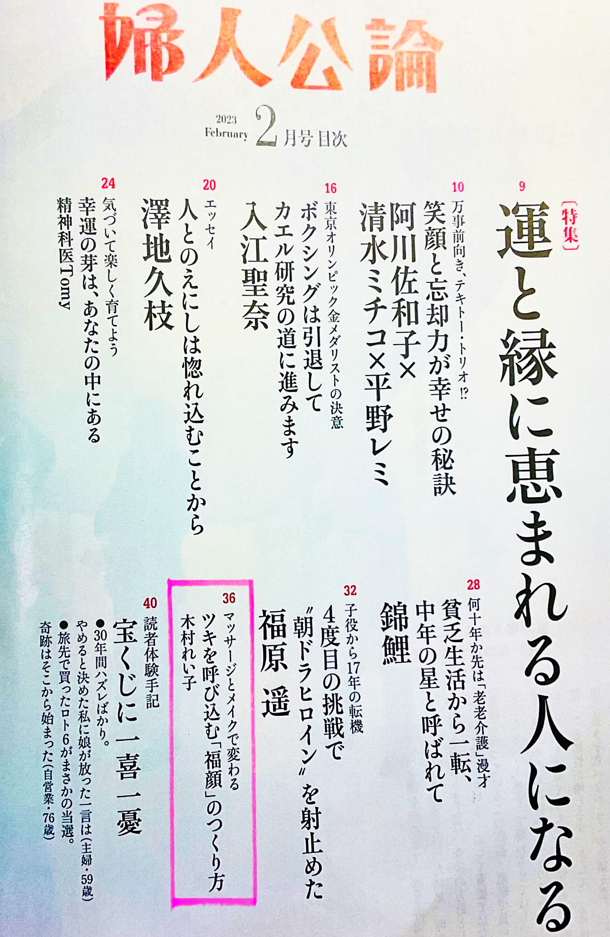 婦人公論
2023
February
2月号目次
9
[特集]
運と縁に恵まれる人になる
10
万事前向き、テキトー・トリオ!?
笑顔と忘却力が幸せの秘訣
阿川佐和子×
清水ミチコ×平野レミ
16
東京オリンピック金メダリストの決意
ボクシングは引退して
カエル研究の道に進みます
入江聖奈
20
エッセイ
人とのえにしは惚れ込むことから
澤地久枝
24
気づいて楽しく育てよう
幸運の芽は、あなたの中にある
精神科医Tomy
28
何十年か先は「老老介護」漫才
貧乏生活から一転、
中年の星と呼ばれて
錦鯉
32
子役から17年の転機
4度目の挑戦で
“朝ドラヒロイン”を射止めた
福原 遥
36
マッサージとメイクで変わる
ツキを呼び込む「福顔」のつくり方
木村れい子
40
読者体験手記
宝くじに一喜一憂
●30年間ハズレばかり。
やめると決めた私に娘が放った一言は(主婦・59歳)
●旅先で買ったロト6がまさかの当選。
奇跡はそこから始まった(自営業・76歳)